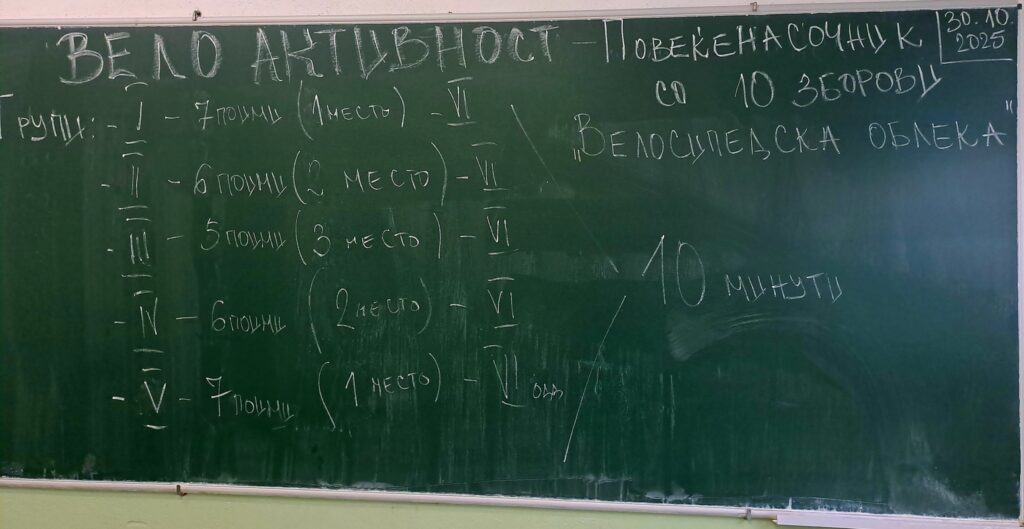 ВЕЛО АКТИВНОСТ – ПОВЕЌЕНАСОЧНИК
СО 10 ЗБОРОВИ
"ВЕЛОСИПЕДСКА ОБЛЕКА"
30.10.
2025
ГРУПИ: - I – 7 ПОИМИ (1 МЕСТО) – VI
- II – 6 ПОИМИ (2 МЕСТО) – VII
- III – 5 ПОИМИ (3 МЕСТО) – VI
- IV – 6 ПОИМИ (2 МЕСТО) – VI
- V – 7 ПОИМИ (1 МЕСТО) – VI ОДД
10 МИНУТИ